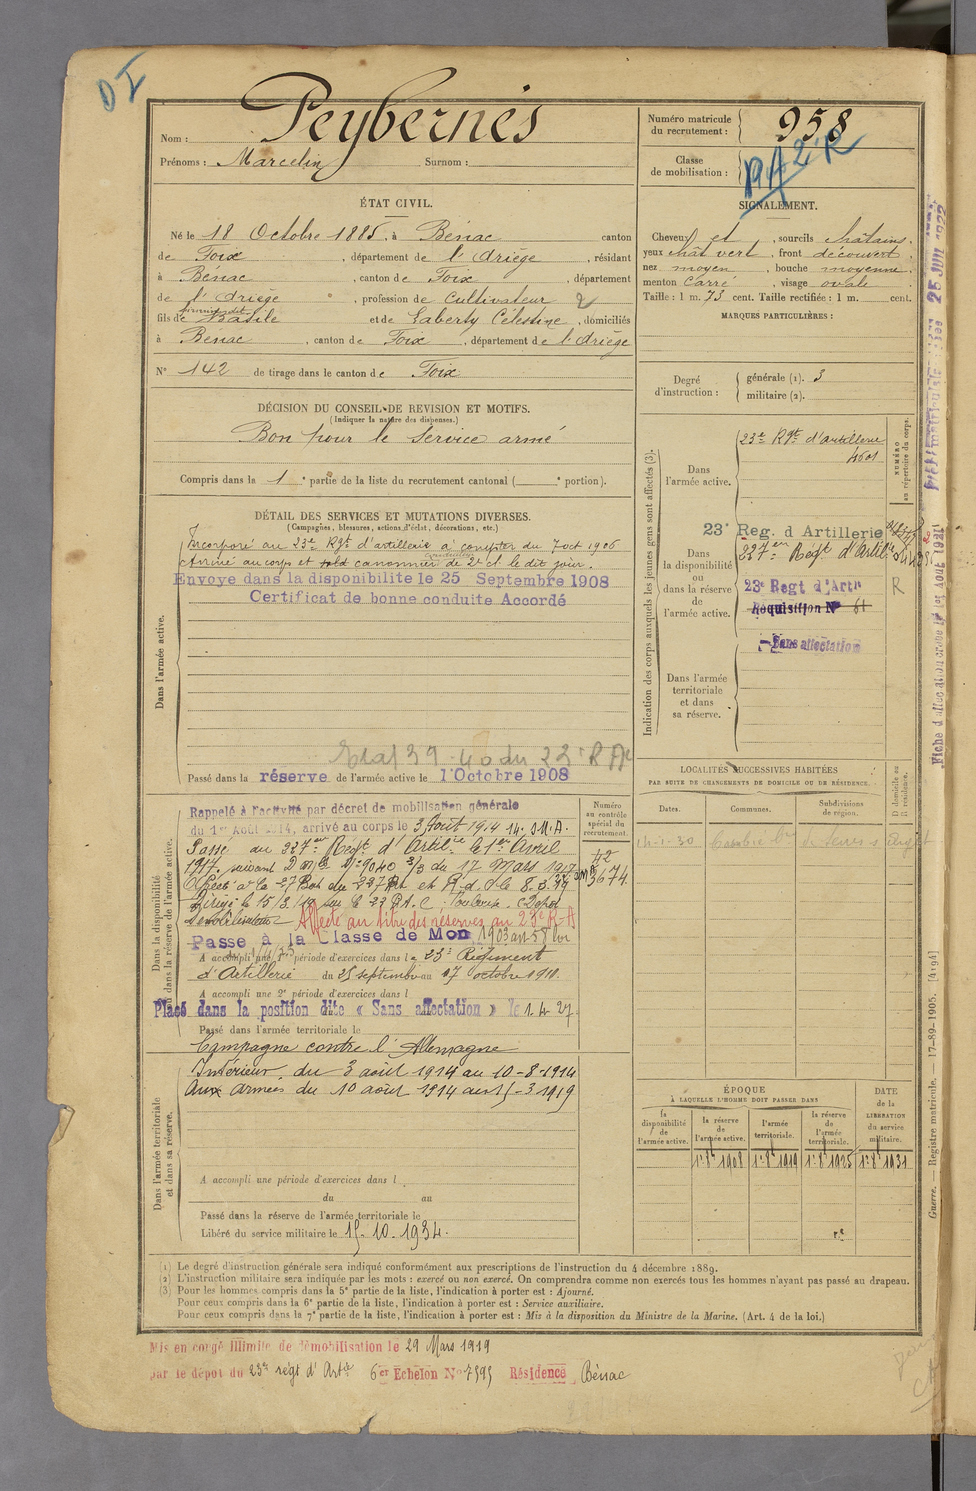 Peybernès
Nom :
Prénoms : Marcelin Surnom :
Numéro matricule
du recrutement : 958
Classe
de mobilisation :
ÉTAT CIVIL.
Né le 18 Octobre 1885, à Bénac canton
de Foix, département de l'Ariège, résidant
à Bénac, canton de Foix, département
de l'Ariège, profession de cultivateur 2
fils de Basile et de Laberty Célestine, domiciliés
à Bénac, canton de Foix, département de l'Ariège
N° 142 de tirage dans le canton de Foix
SIGNALEMENT.
Cheveux et sourcils châtains.
yeux chât vert, front découvert
nez moyen, bouche moyenne
menton carré, visage ovale
Taille : 1 m. 73 cent. Taille rectifiée : 1 m. cent.
MARQUES PARTICULIÈRES :
Degré
d'instruction :
générale (1). 3
militaire (2).
DÉCISION DU CONSEIL DE REVISION ET MOTIFS.
(Indiquer la nature des dispenses.)
Bon pour le Service armé
Compris dans la 1e partie de la liste du recrutement cantonal ( e portion).
DÉTAIL DES SERVICES ET MUTATIONS DIVERSES.
(Campagnes, blessures, actions d'éclat, décorations, etc.)
Dans l'armée active.
Incorporé au 23e Rgt d'artillerie à compter du 7 oct 1906
Arrivé au corps et canonnier de 2e cl. le dit jour.
Envoye dans la disponibilite le 25 Septembre 1908
Certificat de bonne conduite Accordé
Passé dans la réserve de l'armée active le 1 Octobre 1908
Indication des corps auxquels les jeunes gens sont affectés (3).
NUMÉRO
au répertoire du corps.
Dans
l'armée active.
23e Rgt d'artillerie
Dans
la disponibilité
ou
dans la réserve
de
l'armée active.
23e Reg. d Artillerie
227e Regt d'Artie
23e Regt d'Artie
R
Réquisition N° 61
Sans affectation
Dans l'armée
territoriale
et dans
sa réserve.
Dans la disponibilité
ou dans la réserve de l'armée active.
Numéro
au contrôle
spécial du
recrutement.
Rappelé à l'activité par décret de mobilisation générale
du 1er Août 1914, arrivé au corps le 3 Août 1914
Passé au 227e Regt d'Artillie le 1er Avril
1917. suivant 9040 3/3 du 17 Mars 1917
Affecte au titre des réserves au 23e R-A
Passe à la Classe de Mon 1903
A accompli une 1re période d'exercices dans le 23e Régiment
d'Artillerie du 25 septembre au 17 octobre 1910.
A accompli une 2e période d'exercices dans l
Placé dans la position dite « Sans affectation » le 1 4 27
Passé dans l'armée territoriale le
Campagne contre l'Allemagne
Intérieur du 3 août 1914 au 10-8-1914
Aux armées du 10 août 1914 au 15-3-1919
Dans l'armée territoriale
et dans sa réserve.
A accompli une période d'exercices dans l
du au
Passé dans la réserve de l'armée territoriale le
Libéré du service militaire le 15-10-1934.
LOCALITÉS SUCCESSIVES HABITÉES
PAR SUITE DE CHANGEMENTS DE DOMICILE OU DE RÉSIDENCE.
Dates. Communes. Subdivisions
de région.
D domicile ou
R résidence.
ÉPOQUE
À LAQUELLE L'HOMME DOIT PASSER DANS
la
disponibilité
de
l'armée active.
la réserve
de
l'armée active.
l'armée
territoriale.
la réserve
de
l'armée
territoriale.
DATE
de la
LIBÉRATION
du service
militaire.
1er 8bre 1908 1er 8bre 1919 1er 8bre 1925 1er 8bre 1931
(1) Le degré d'instruction générale sera indiqué conformément aux prescriptions de l'instruction du 4 décembre 1889.
(2) L'instruction militaire sera indiquée par les mots : exercé ou non exercé. On comprendra comme non exercés tous les hommes n'ayant pas passé au drapeau.
(3) Pour les hommes compris dans la 5e partie de la liste, l'indication à porter est : Ajourné.
Pour ceux compris dans la 6e partie de la liste, l'indication à porter est : Service auxiliaire.
Pour ceux compris dans la 7e partie de la liste, l'indication à porter est : Mis à la disposition du Ministre de la Marine. (Art. 4 de la loi.)
Mis en congé illimité de démobilisation le 29 Mars 1919
par le dépôt du 23e régt d'Artie 6er Echelon N° 7595 Résidence Bénac
Guerre. — Registre matricule. — 17-89-1905. [4194]